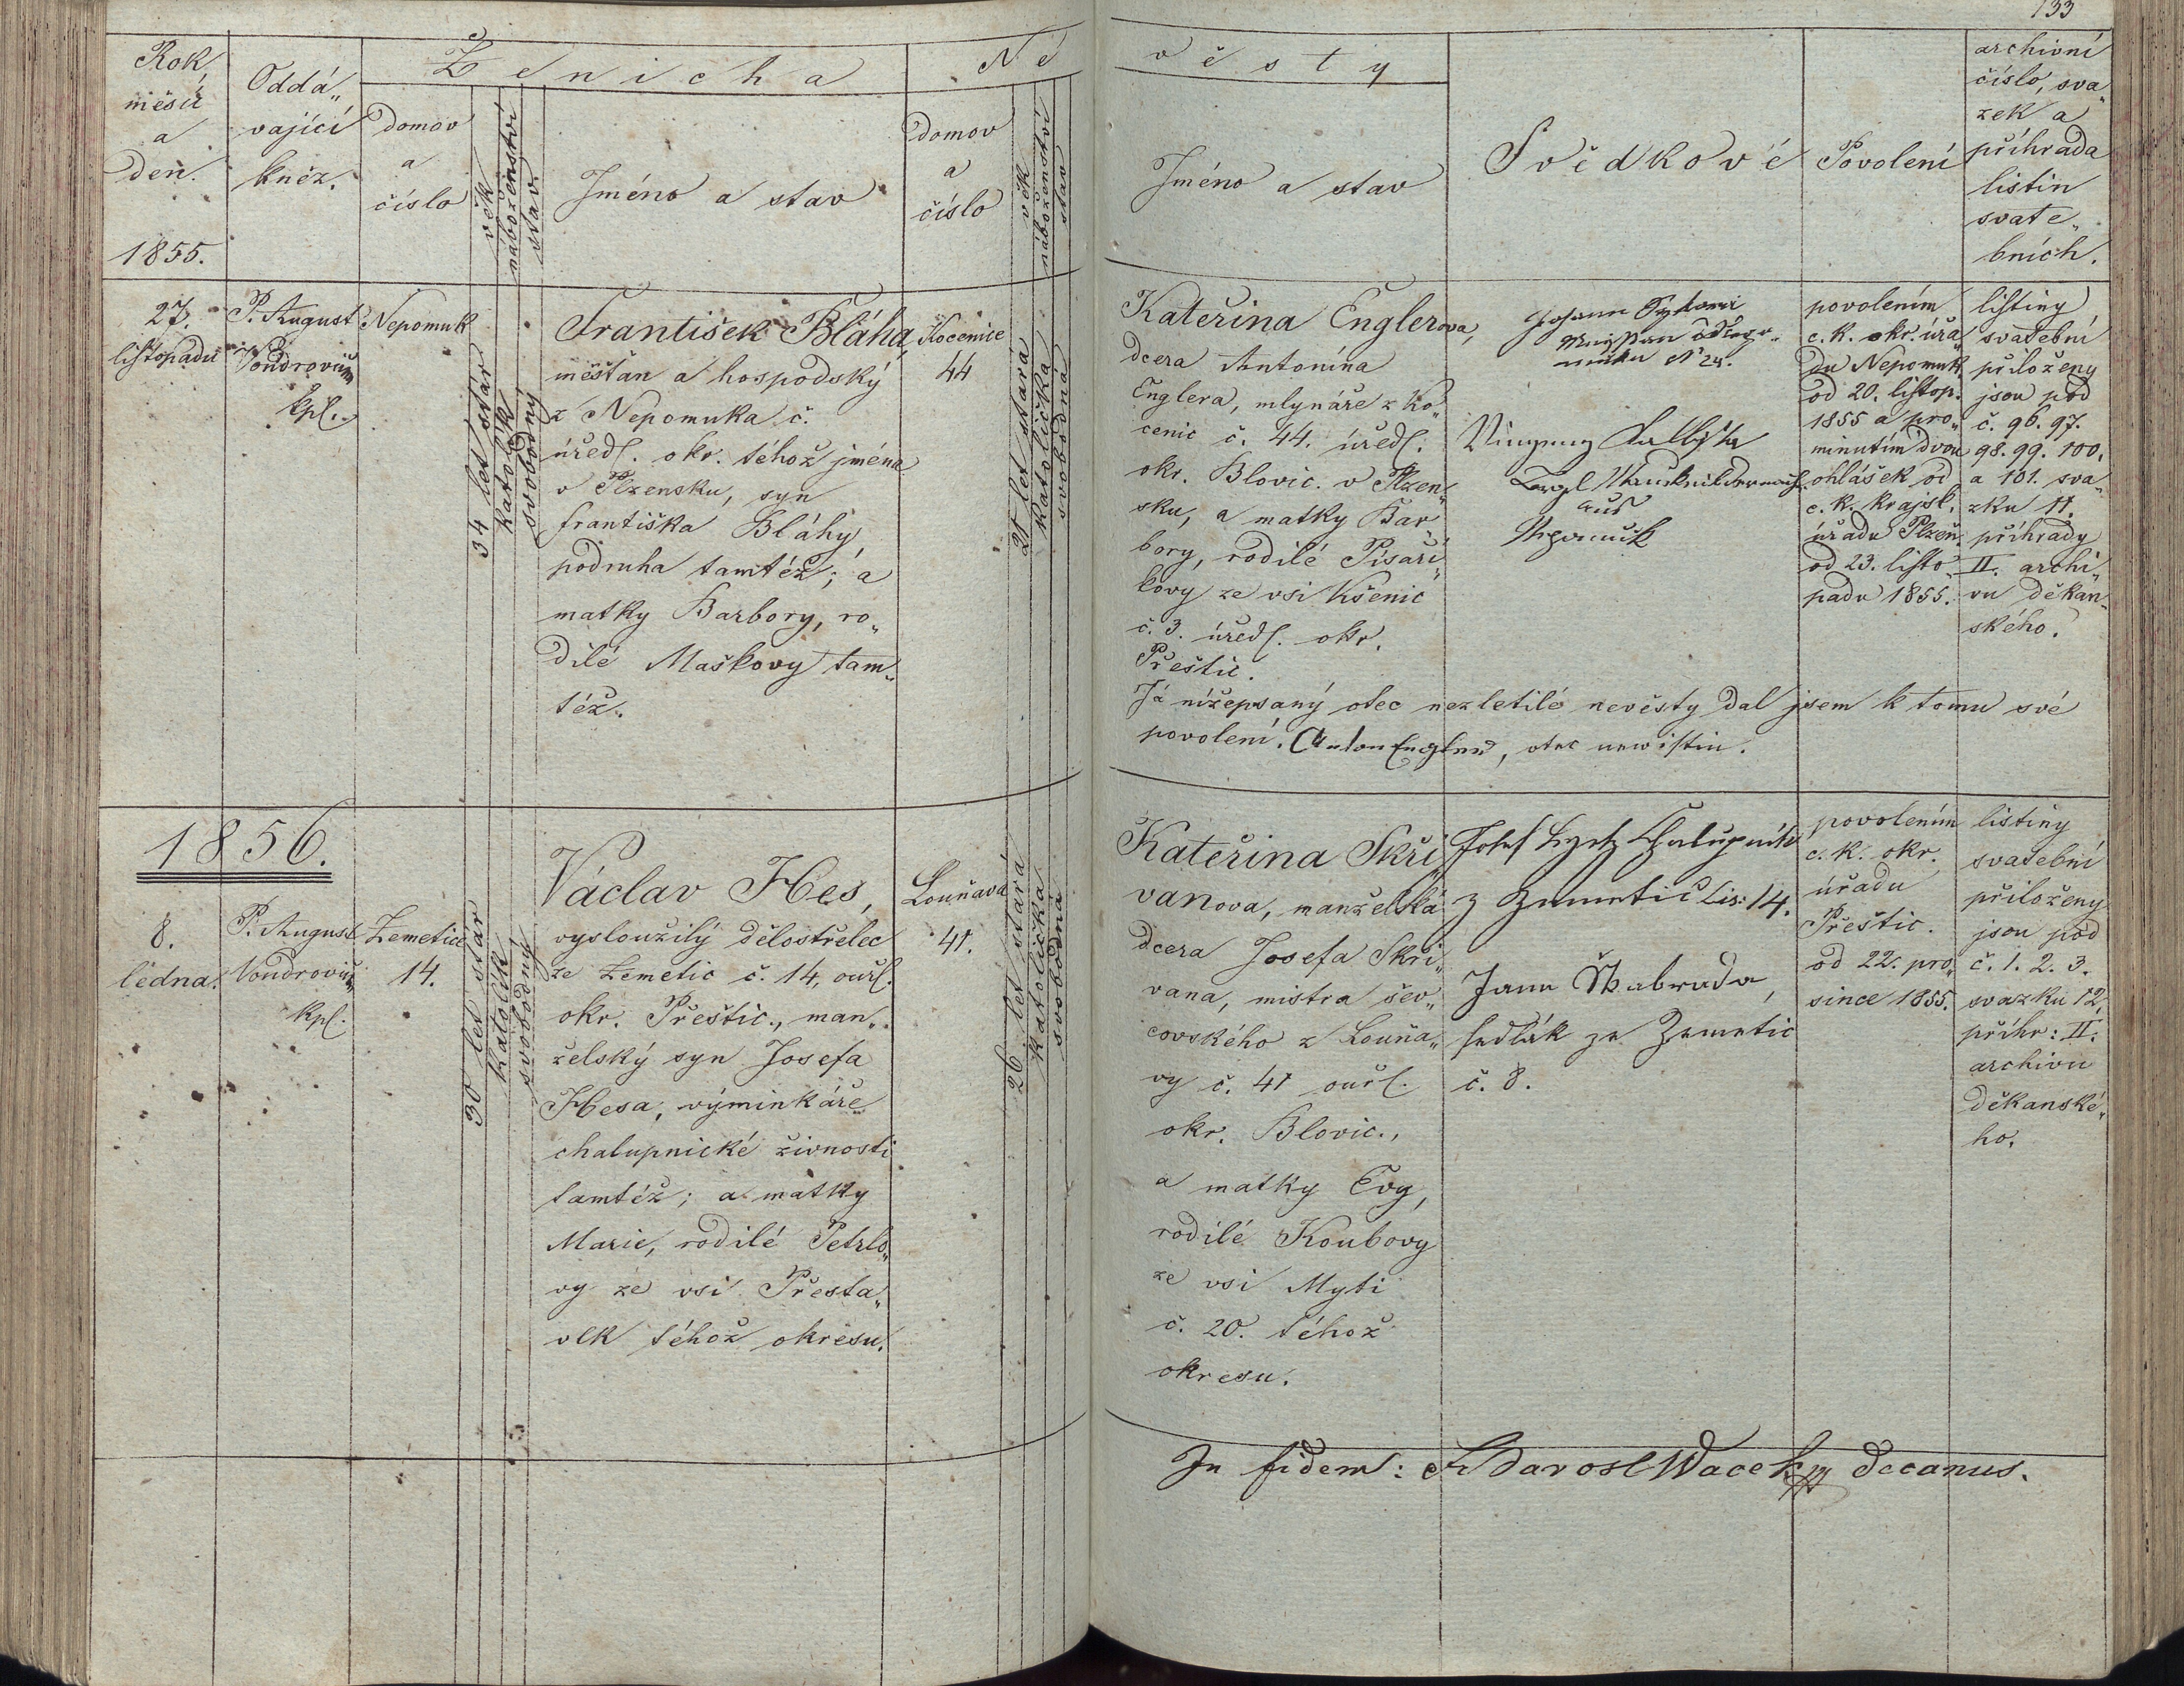 133
Rok
měsíc
a
den.
1855.
Oddá„
vající
kněz.
Ženicha
domov
a
číslo
věk
náboženství
stav.
Jméno a stav
Ně
domov
a
číslo
věk
náboženství
stav
věsty
Jméno a stav
Svědkové
Povolení
archivní
číslo, sva„
zek a
příhrada
listin
svate„
bních.
27.
listopadu
P. August
Vondrovic
kpl.
Nepomuk
34 let stár
katolík
svobodný
František Bláha,
měšťan a hospodský
z Nepomuka č.
úředl. okr. téhož jména
v Plzensku, syn
františka Bláhy
podruha tamtéž; a
matky Barbory, ro„
dilé Maškovy tam„
též.
Kocenice
44
21 let stara
katolička
svobodná
Kateřina Englerova,
dcera Antonína
Englera, mlynáře z Ko„
cenic č. 44. úředl.
okr. Blovic. v Plzen„
sku, a matky Bar„
bory, rodilé Písaři„
kovy ze vsi Kšenic
č. 3. úředl. okr.
Přeštic.
Johann
N 24.
aus
Nepomuk
povolením
c. k. okr. úřa„
du Nepomuk.
od 20. listop.
1855 a pro„
minutím dvou
ohlášek od
c. k. krajsk.
úřadu Plzeň.
od 23. listo„
padu 1855.
listiny
svatební
přiloženy
jsou pod
č. 96. 97.
98. 99. 100.
a 101. sva„
zku 11.
příhrady
II. archi„
vu děkan„
ského.
Já nížepsaný otec nezletilé nevěsty dal jsem k tomu své
povolení. Anton Engler, otec newistin.
1856.
8.
ledna.
P. August
Vondrovic
kpl.
Zemetice
14.
30 let stár
katolík
svobodný
Václav Hes,
vysloužilý dělostřelec
ze Zemetic č. 14, ouřl.
okr. Přeštic., man„
želský syn Josefa
Hesa, výminkáře
chalupnické živnosti
tamtéž; a matky
Marie, rodilé Petrlo„
vy ze vsi Přesta„
vlk téhož okresu.
Louňava
41.
26 let stará
katolička
svobodna
Kateřina Skři„
vanova, manželská
dcera Josefa Skři„
vana, mistra šev„
covského z Louňa„
vy č. 41 ouřl.
okr. Blovic.,
a matky Evy,
rodilé Koubovy
ze vsi Myti
č. 20. téhož
okresu.
Josef Chalupník
z Zemetic čis: 14.
Jann Škabrada,
sedlák ze Zemetic
č. 8.
povolením
c. k. okr.
úřadu
Přeštic.
od 22. pro„
since 1855.
listiny
svatební
přiloženy
jsou pod
č. 1. 2. 3.
svazku 12,
příhr: II.
archivu
děkanské„
ho.
In fidem: Wacek decanus.